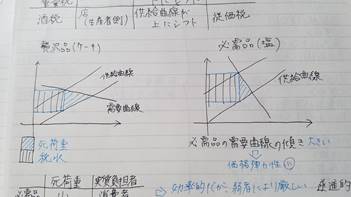 酒税 店(生産者側) 供給曲線が上にシフト 従価税
贅沢品(ケーキ)
必需品(塩)
供給曲線
需要曲線
供給曲線
死荷重
税収
必需品の需要曲線の傾き 大きい
価格弾力性 小
死荷重 実質負担者
必需品 小 消費者
⇒ 効率的だが、弱者により厳しい 逆進的